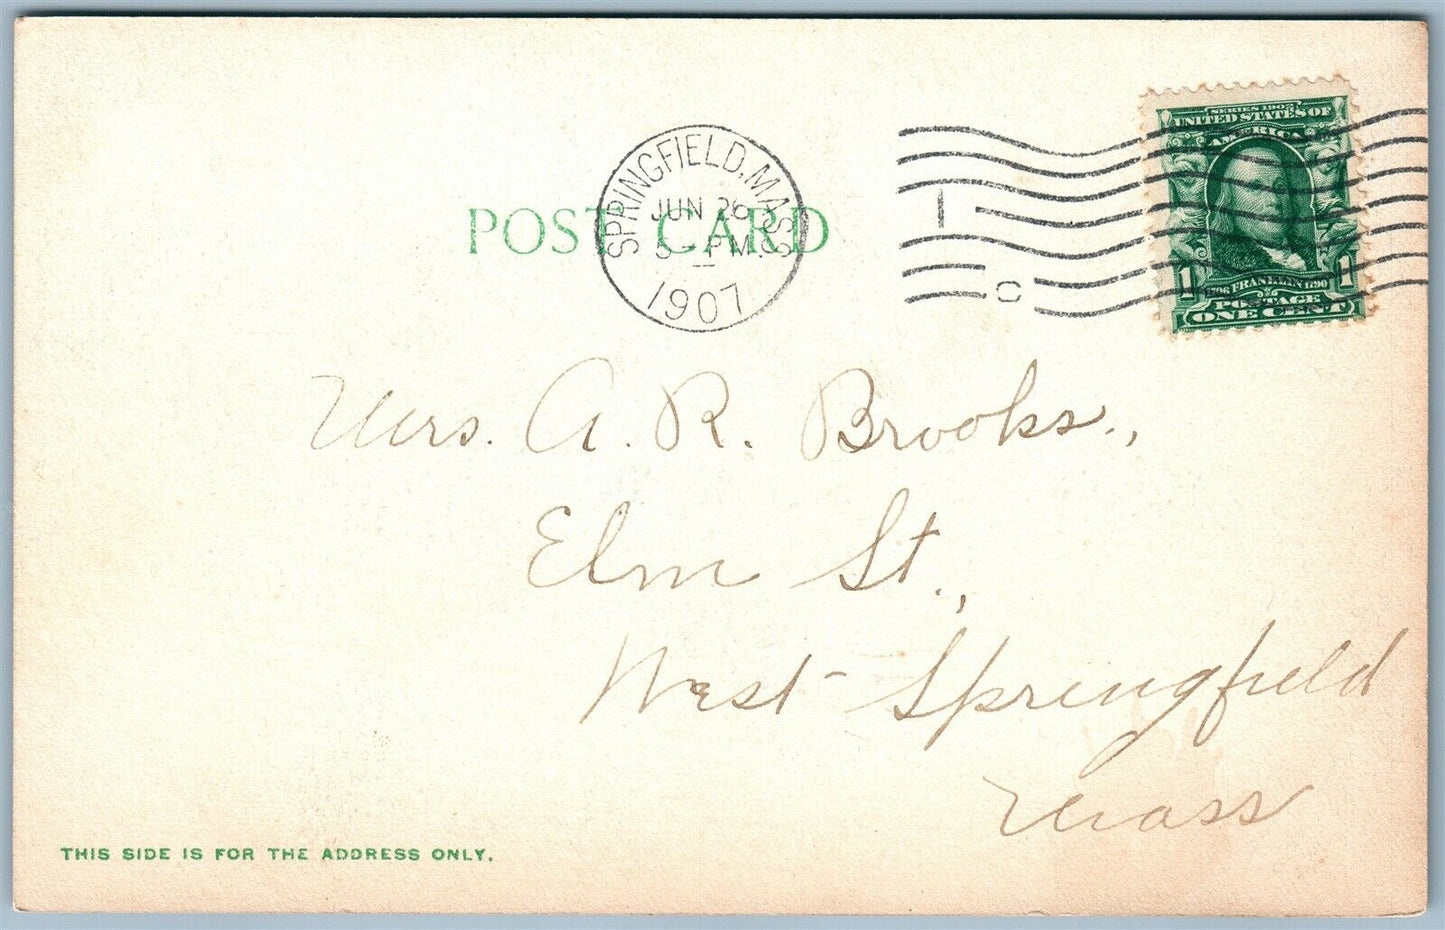 POST CARD
SPRINGFIELD, MASS.
JUN 26
5 - PM
1907
1
C
SERIES 1902
UNITED STATES OF
AMERICA
1 1
1706 FRANKLIN 1790
POSTAGE
ONE CENT
Mrs. A. R. Brooks.,
Elm St.,
West Springfield
Mass
THIS SIDE IS FOR THE ADDRESS ONLY.